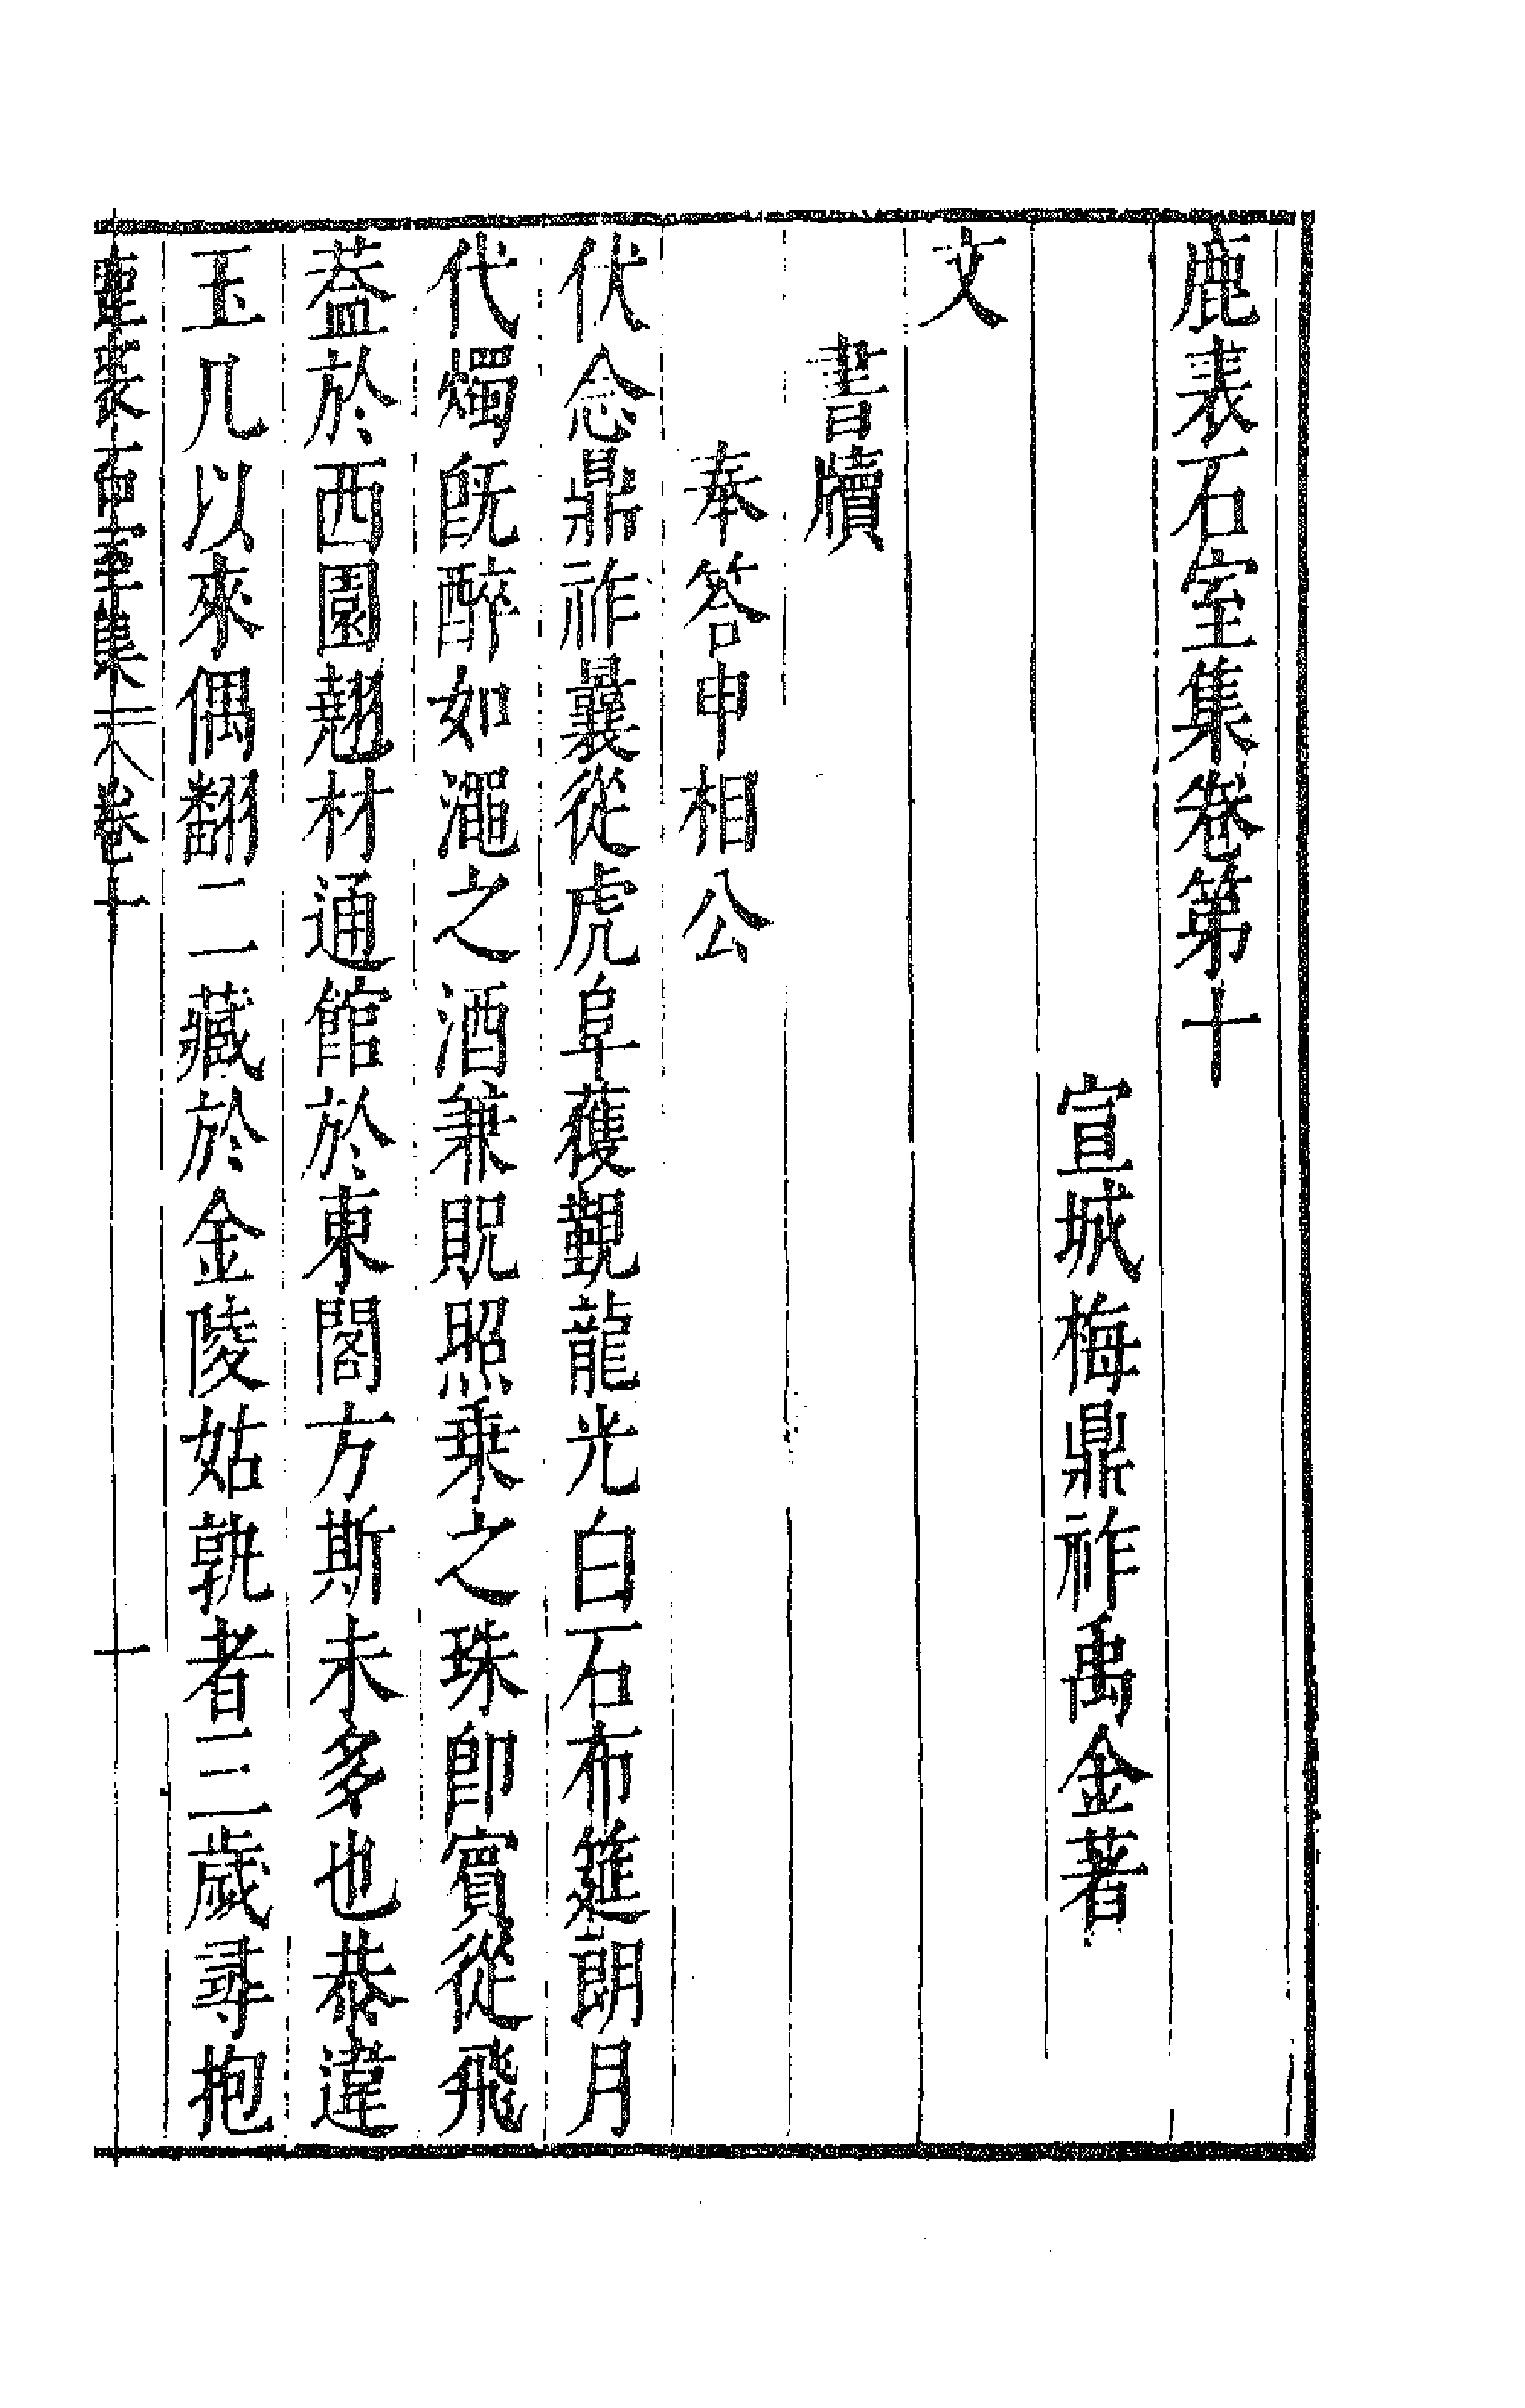 鹿裘石室集卷第十
宣城梅鼎祚禹金著
文
書牘
奉答申相公
伏念鼎祚曩從虎阜獲覲龍光白石布筵朗月
代燭旣醉如澠之酒兼貺照乗之珠卽賓從飛
葢於西園翹材通館於東閣方斯未多也恭違
玉几以來偶翻二一藏於金陵姑孰者三歲尋抱
鹿裘石室集 卷十 一